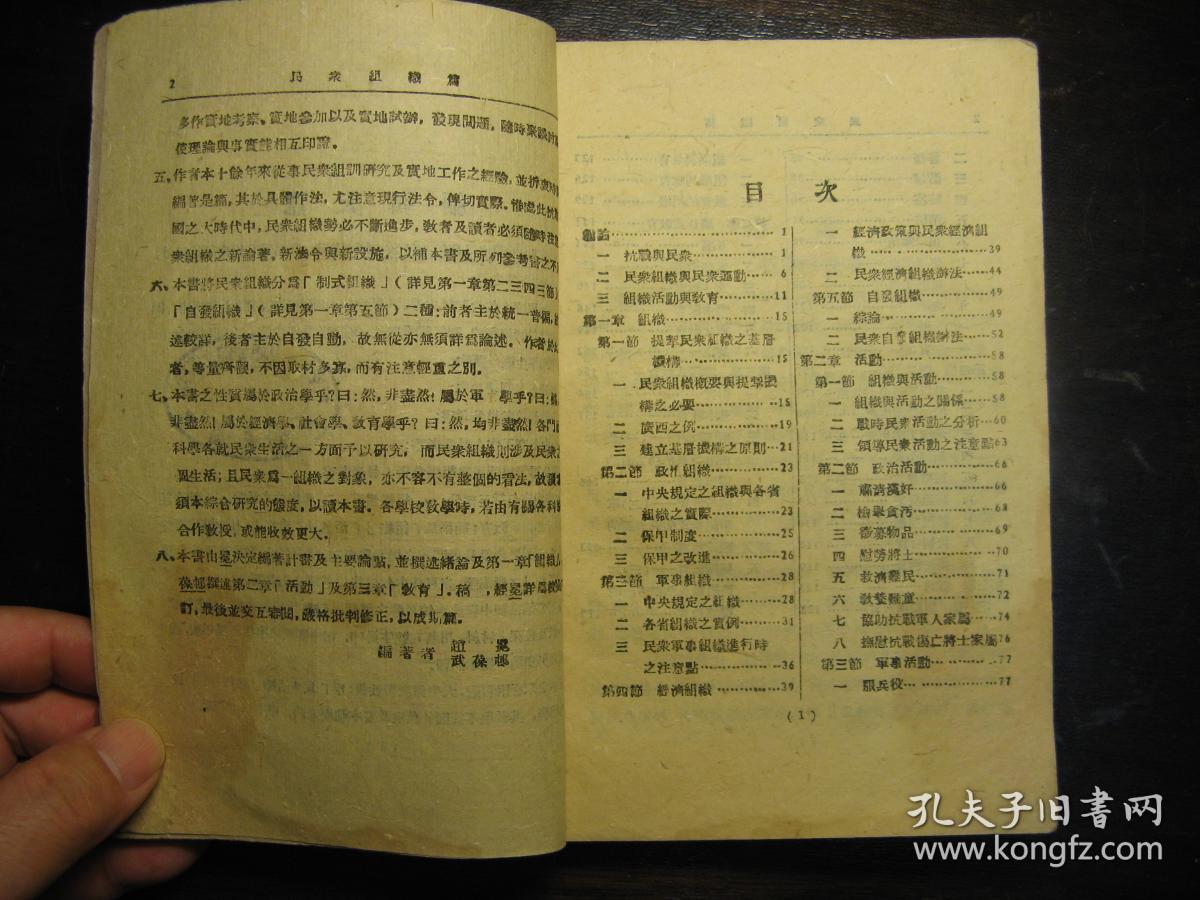 2 民衆組織篇
多作實地考察、實地參加以及實地試辦，發現問題，隨時
使理論與事實能相互印證。
五、作者本十餘年來從事民衆組訓研究及實地工作之經驗，並
編著是篇，其於具體作法，尤注意現行法令，俾切實際。惟處此抗
國之大時代中，民衆組織勢必不斷進步，教者及讀者必須隨時注
衆組織之新論著、新法令與新設施，以補本書及所列參考書之不
六、本書將民衆組織分爲「制式組織」（詳見第一章第二三四三節）
「自發組織」（詳見第一章第五節）二種：前者主於統一普徧，
述較詳，後者主於自發自動，故無從亦無須詳爲論述。作者於
者，等量齊觀，不因取材多寡，而有注意輕重之別。
七、本書之性質屬於政治學乎？曰：然，非盡然！屬於軍 學乎？曰：
非盡然！屬於經濟學、社會學、教育學乎？曰：然，均非盡然！各門
科學各就民衆生活之一方面予以研究，而民衆組織則涉及民衆
個生活；且民衆爲一組織之對象，亦不容不有整個的看法，故
須本綜合研究的態度，以讀本書。各學校教學時，若由有關各科
合作教授，或能收效更大。
八、本書由冕決定編著計畫及主要論點，並撰述緒論及第一章「組織」
葆邨撰述第二章「活動」及第三章「教育」。稿 ，經冕詳爲
訂，最後並交互審閱，嚴格批判修正，以成斯篇。
編著者 趙冕
武葆邨
目次
緒論 1
一 抗戰與民衆 1
二 民衆組織與民衆運動 6
三 組織活動與教育 11
第一章 組織 15
第一節 提挈民衆組織之基層
機構 15
一、民衆組織概要與提挈機
構之必要 15
二 廣西之例 19
三 建立基層機構之原則 21
第二節 政治組織 23
一 中央規定之組織與各省
組織之實際 23
二 保甲制度 25
三 保甲之改進 26
第三節 軍事組織 28
一 中央規定之組織 28
二 各省組織之實例 31
三 民衆軍事組織進行時
之注意點 36
第四節 經濟組織 39
一 經濟政策與民衆經濟組
織 39
二 民衆經濟組織辦法 44
第五節 自發組織 49
一 綜論 49
二 民衆自發組織辦法 52
第二章 活動 58
第一節 組織與活動 58
一 組織與活動之關係 58
二 戰時民衆活動之分析 60
三 領導民衆活動之注意點 63
第二節 政治活動 66
一 肅清漢奸 66
二 檢舉貪污 68
三 徵募物品 69
四 慰勞將士 70
五 救濟難民 71
六 教養難童 72
七 協助抗戰軍人家屬 74
八 撫慰抗戰傷亡將士家屬 76
第三節 軍事活動 77
一 服兵役 77
(1)
孔夫子旧书网
www.kongfz.com